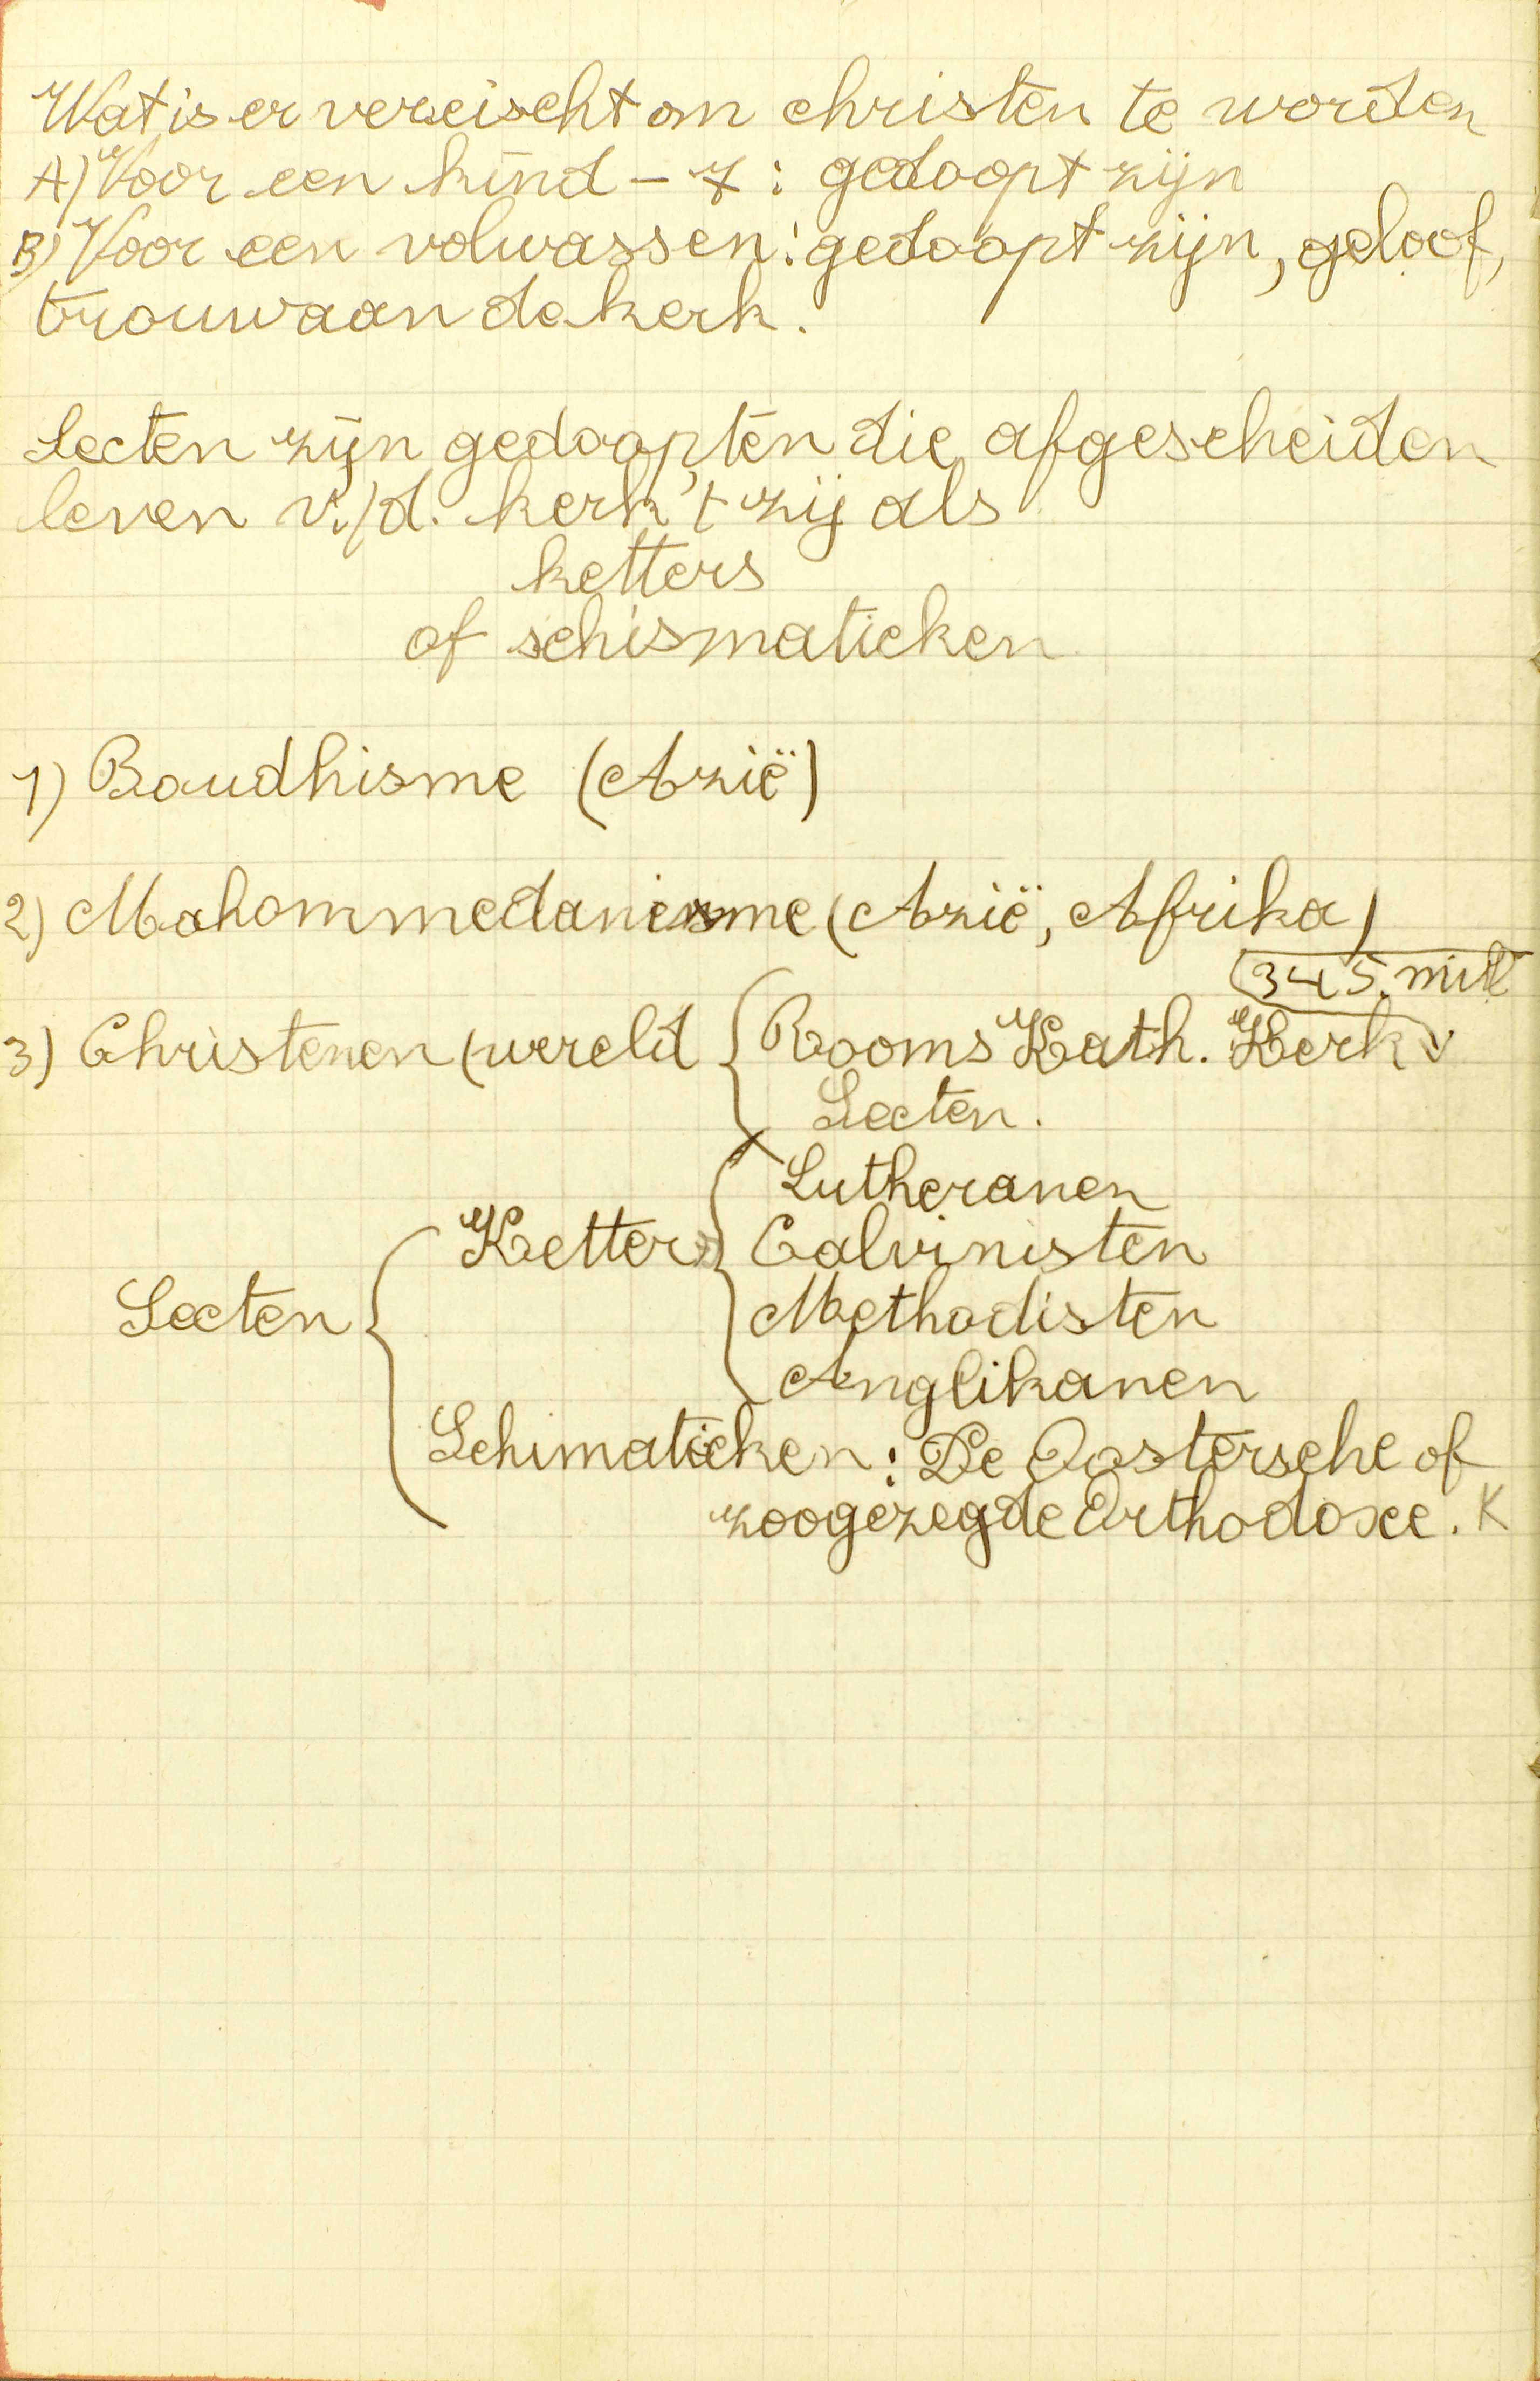 Wat is er vereischt om christen te worden
A) Voor een kind – 7 : gedoopt zijn
B) Voor een volwassen : gedoopt zijn, geloof,
trouw aan de kerk.
Secten zijn gedoopten die afgescheiden
leven v./d. kerk 't zij als
ketters
of schismatieken
1) Boudhisme (Azië)
2) Mahommedanisme (Azië, Afrika)
345 mill
3) Christenen (wereld { Rooms Kath. Kerk
Secten.
Lutheranen
Ketters { Calvinisten
Secten { Methodisten
Anglikanen
Schimatieken : De Oostersche of
zoogezegde Orthodoxe. K